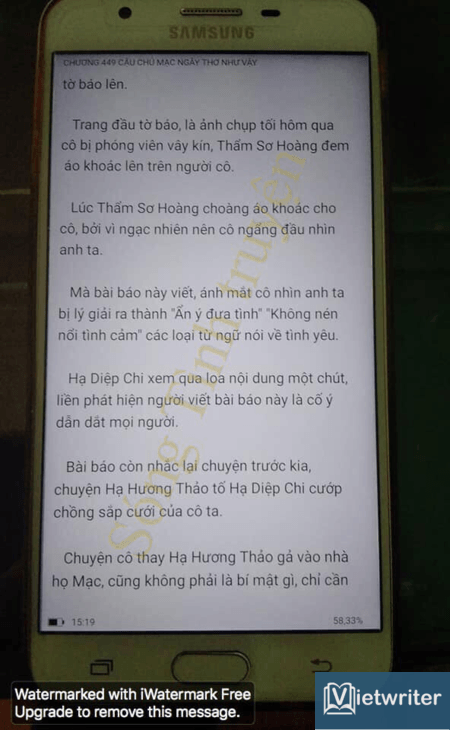 SAMSUNG
CHƯƠNG 449 CẬU CHỦ MẠC NGÂY THƠ NHƯ VẬY
tờ báo lên.
Trang đầu tờ báo, là ảnh chụp tối hôm qua
cô bị phóng viên vây kín, Thẩm Sơ Hoàng đem
áo khoác lên trên người cô.
Lúc Thẩm Sơ Hoàng choàng áo khoác cho
cô, bởi vì ngạc nhiên nên cô ngẩng đầu nhìn
anh ta.
Mà bài báo này viết, ánh mắt cô nhìn anh ta
bị lý giải ra thành "Ẩn ý đưa tình" "Không nén
nổi tình cảm" các loại từ ngữ nói về tình yêu.
Hạ Diệp Chi xem qua loa nội dung một chút,
liền phát hiện người viết bài báo này là cố ý
dẫn dắt mọi người.
Bài báo còn nhắc lại chuyện trước kia,
chuyện Hạ Hương Thảo tố Hạ Diệp Chi cướp
chồng sắp cưới của cô ta.
Chuyện cô thay Hạ Hương Thảo gả vào nhà
họ Mạc, cũng không phải là bí mật gì, chỉ cần
15:19
58,33%
Sóng Tình truyện
Watermarked with iWatermark Free
Upgrade to remove this message.
Vietwriter